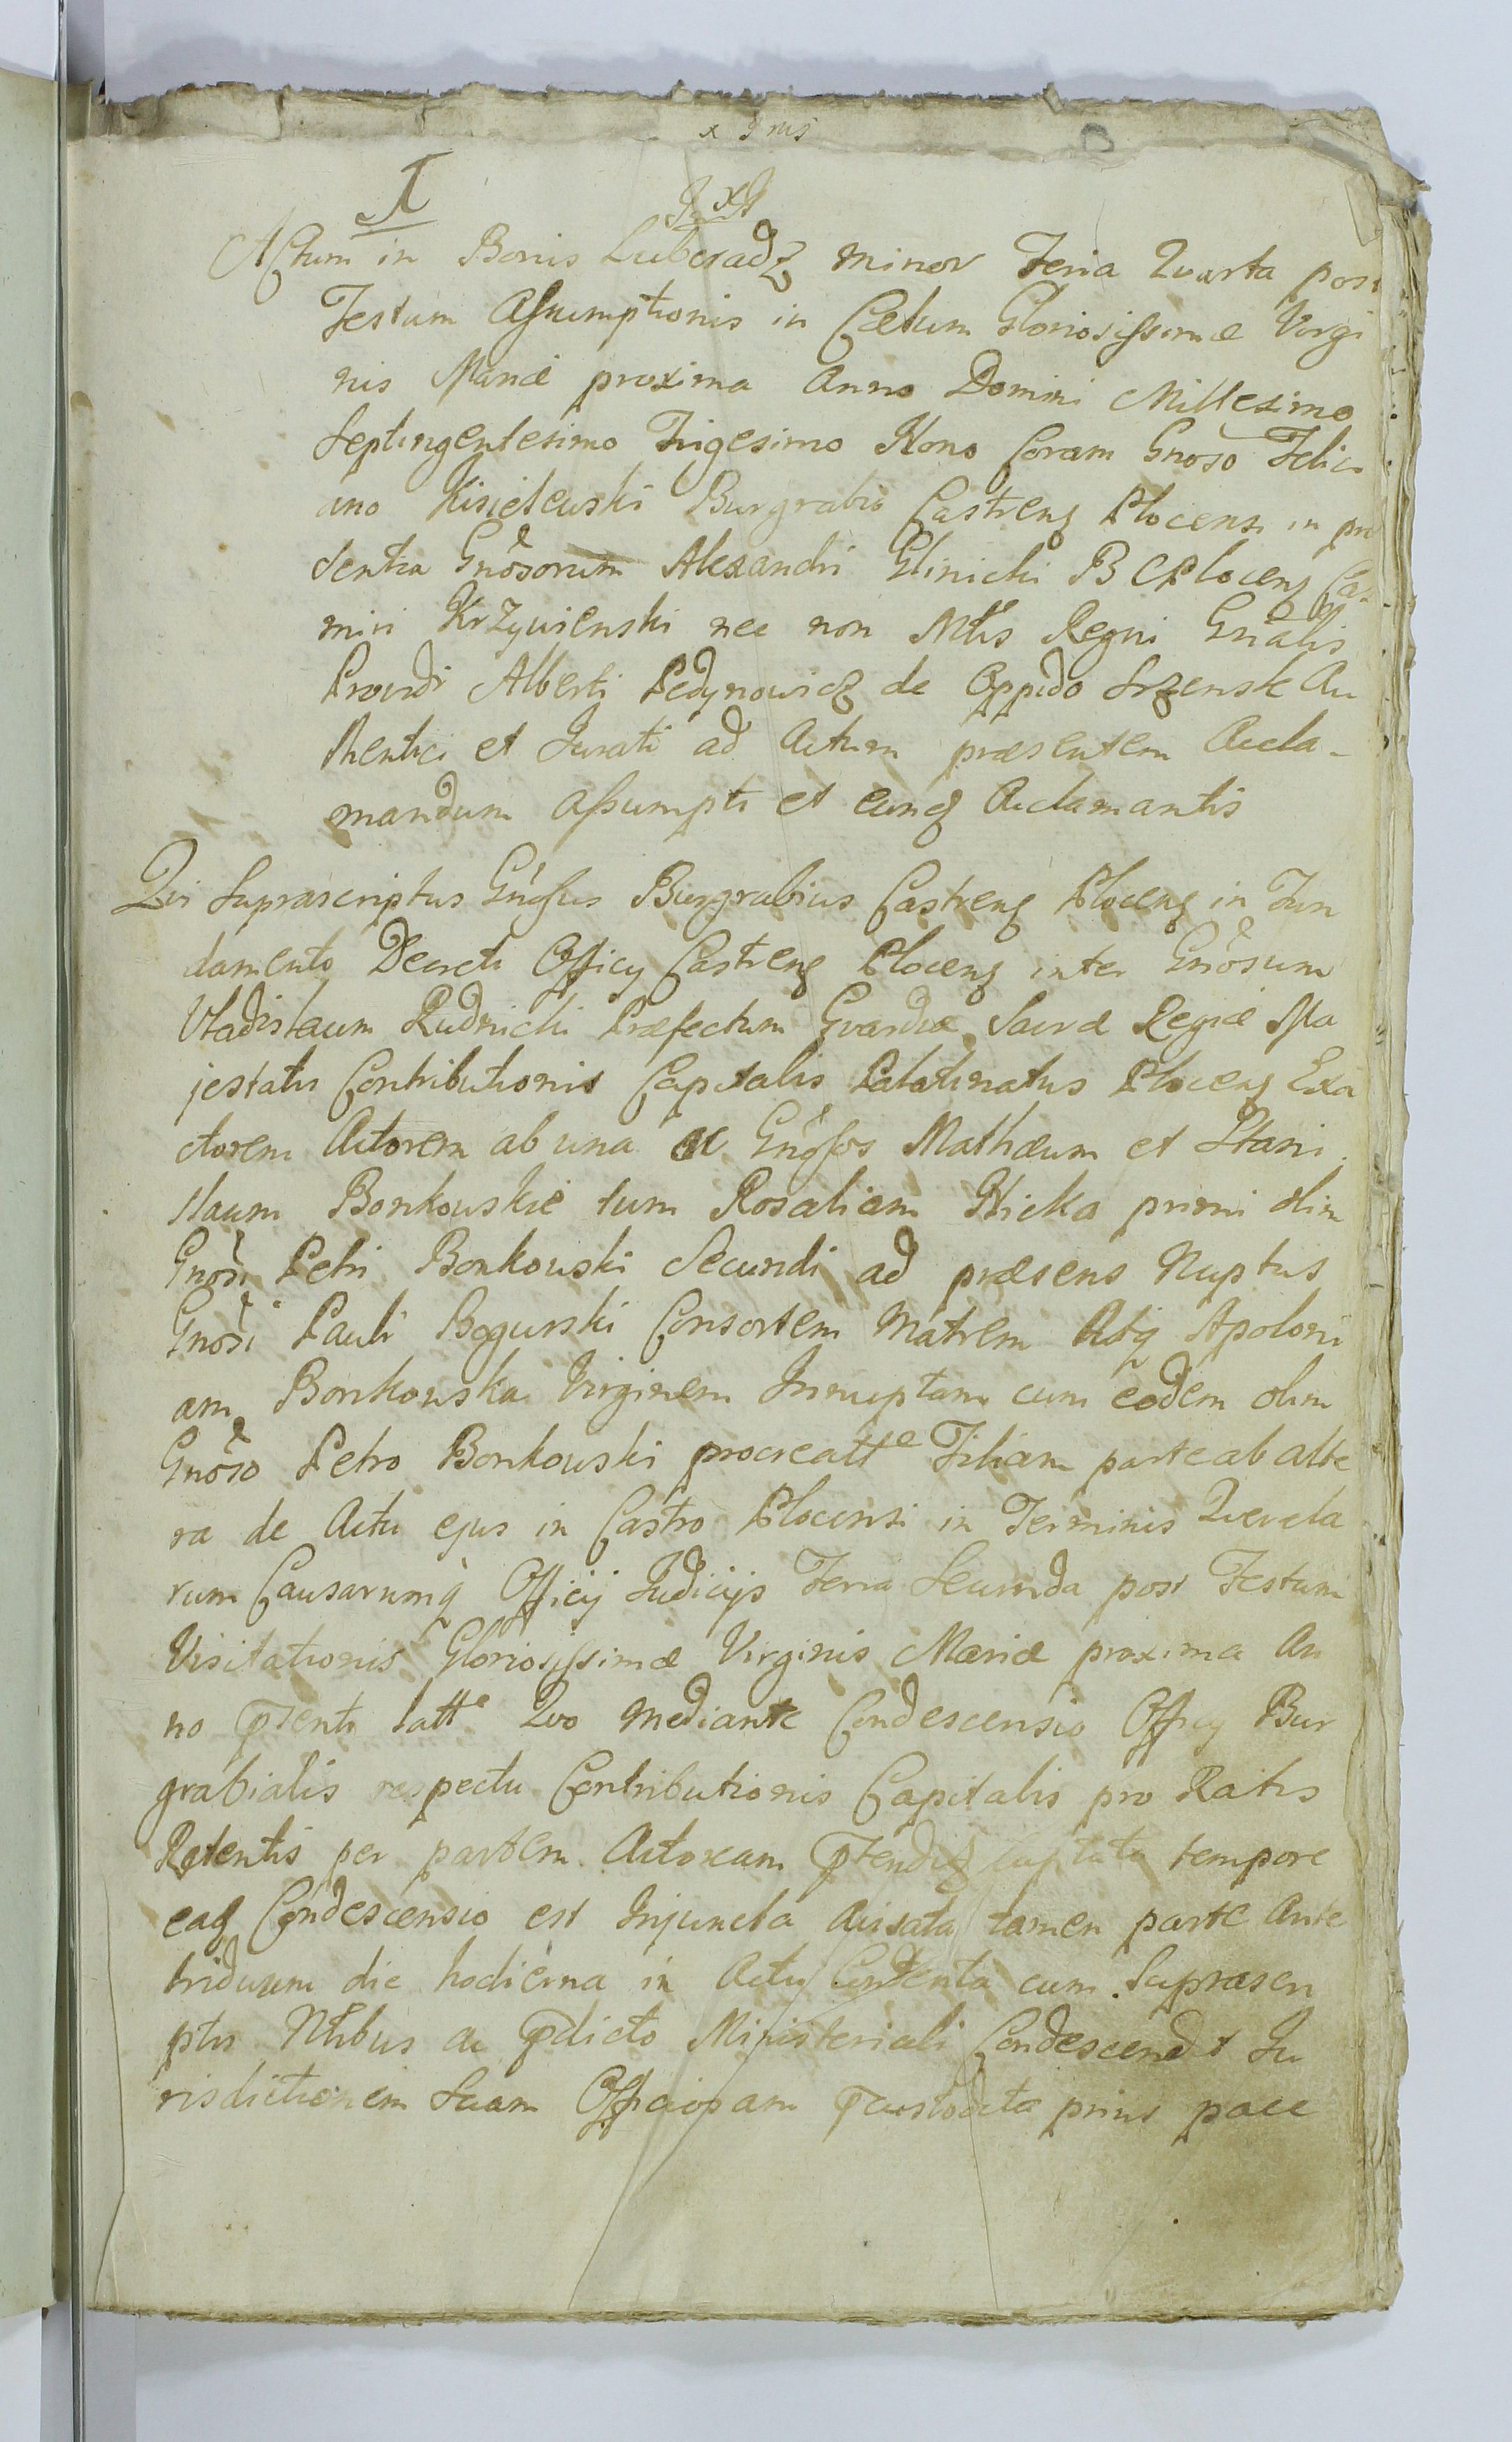 x g ms
I
Actum in Bonis Luberadz minor Feria Quarta post
Festum Assumptionis in Cœlum Gloriosissimæ Virgi
nis Mariæ proxima Anno Domini Millesimo
Septingentesimo Trigesimo Nono Coram Gnõso Felici
ano Kisielewski Burgrabio Castreng Plocensi in præ
sentia Gnõsorum Alexandri Glinicki B C Ploceng Cas
miri Krzywienski nec non Mtlis Regni Gnãlis
Providi Alberti Pedynowicz de Oppido Srzensk Au
thentici et Jurati ad Actum præsentem Accla-
mandum assumpti et eunq Acclamantis
Qui Suprascriptus Gnõsus Burgrabius Castreng Ploceng in Fun
damento Decreti Officij Castreng Ploceng inter Gnõsum
Vladislaum Rudnicki Præfectum Gvardiæ Sacræ Regiæ Ma
jestatis Contributionis Capitalis Palatinatus Ploceng Exa
ctorem Actorem ab una ac Gnõsos Mathæum et Stani
slaum Bonkowskie tum Rosaliam Nicka primi olim
Gnõsi Petri Bonkowski Secundi ad præsens Nuptus
Gnõsi Pauli Bogurski Consortem Matrem Atq Apoloni
am Bonkowska Virginem Innuptam cum eodem olim
Gnõso Petro Bonkowski procreatte Filiam parte ab alte
ra de Actu ejus in Castro Plocensi in Terminis Querela
rum Causarumq Officij Judicijs Feria Secunda post Festum
Visitationis Gloriosissimæ Virginis Mariæ proxima An
no pñenti latte Quo mediante Condescensio Officij Bur
grabialis respectu Contributionis Capitalis pro Ratis
Retentis per partem Actoream ptendeng tempore
eaq Condescensio est Injuncta avisata tamen parte Ante
triduum die hodierna in Actu Contenta cum Suprascri
ptis Ntibus ac pdicto Ministeriali Condescendit Ju
risdictionem Suam Officiosam custodita prius pace